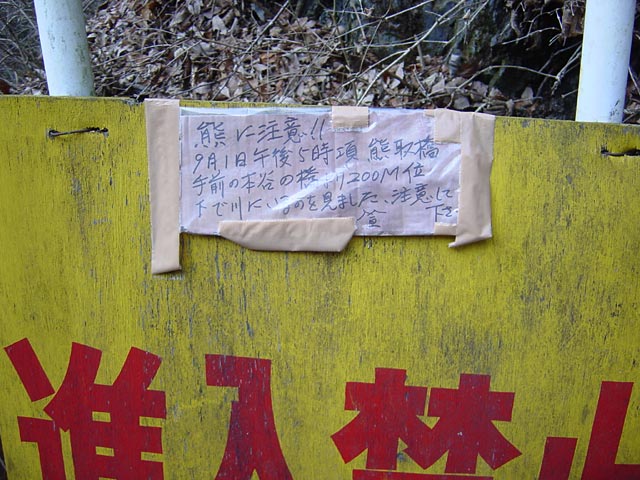 熊に注意!!
9月1日午後5時頃 熊取橋
手前の本谷の橋ヨリ200M位
下で川にいるのを見ました、注意して
登下
進入禁止